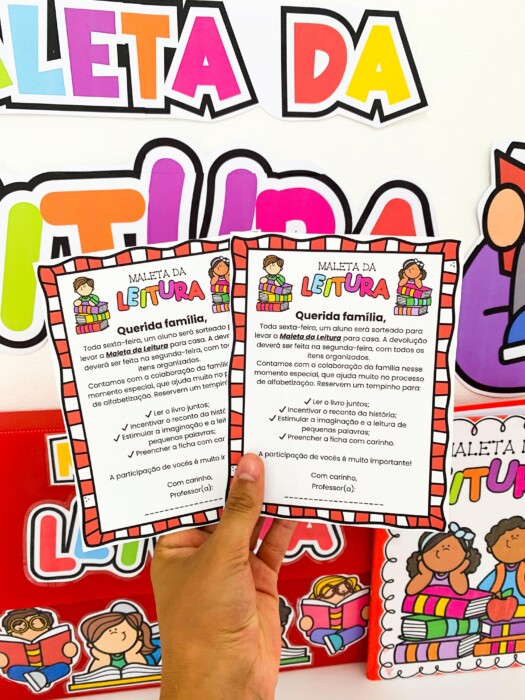 MALETA DA
LEITURA
MALETA DA
LEITURA
Querida família,
Toda sexta-feira, um aluno será sorteado p
levar a Maleta da Leitura para casa. A devo
deverá ser feita na segunda-feira, com to
itens organizados.
Contamos com a colaboração da família n
momento especial, que ajuda muito no p
de alfabetização. Reservem um tempinho
✓ Ler o livro juntos;
✓ Incentivar o reconto da histó
✓ Estimular a imaginação e a lei
pequenas palavras;
✓ Preencher a ficha com cari
A participação de vocês é muito im
Com carinho,
Professor(a):
MALETA DA
LEITURA
Querida família,
Toda sexta-feira, um aluno será sorteado para
levar a Maleta da Leitura para casa. A devolução
deverá ser feita na segunda-feira, com todos os
itens organizados.
Contamos com a colaboração da família nesse
momento especial, que ajuda muito no processo
de alfabetização. Reservem um tempinho para:
✓ Ler o livro juntos;
✓ Incentivar o reconto da história;
✓ Estimular a imaginação e a leitura de
pequenas palavras;
✓ Preencher a ficha com carinho.
A participação de vocês é muito importante!
Com carinho,
Professor(a):
MALETA DA
ITURA